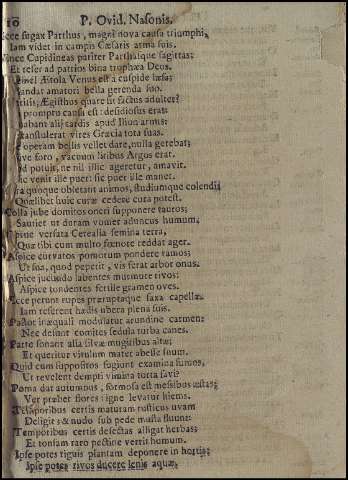 10 P. Ovid. Nasonis.
Ecce fugax Parthus, magni nova causa triumphi,
Iam videt in campis Cæsaris arma suis.
Vince Cupidineas pariter Parthasque sagittas:
Et refer ad patrios bina trophæa Deos.
semel Ætola Venus est a cuspide læsa;
Mandat amatori bella gerenda suo.
Ægisthus quare sit factus adulter?
promptu causa est: desidiosus erat.
alii tardis apud Ilion armis:
Transtulerat vires Græcia tota suas.
operam bellis vellet dare, nulla gerebat;
ive foro, vacuum litibus Argos erat.
d potuit, ne nil illic ageretur, amavit.
ic venit ille puer: sic puer ille manet.
ra quoque oblectant animos, studiumque colendi;
Quælibet huic curæ cedere cura potest.
Colla jube domitos oneri supponere tauros;
Sauciet ut duram vomer aduncus humum,
versata Cerealia semina terra,
Quæ tibi cum multo fœnore reddat ager.
Aspice curvatos pomorum pondere ramos;
Ut sua, quod peperit, vis ferat arbor onus.
Aspice jucundo labentes murmure rivos:
Aspice tondentes fertile gramen oves.
Ecce petunt rupes præruptaque saxa capellæ:
Iam referent hædis ubera plena suis.
Pastor inæquali modulatur arundine carmen:
Nec desunt comites sedula turba canes.
Parte sonant alia silvæ mugitibus altæ;
Et queritur vitulum mater abesse suum.
Quid cum suppositos fugiunt examina fumos,
Ut revelent dempti vimina torta favi?
Poma dat autumnus, formosa est messibus æstas:
Ver præbet flores: igne levatur hiems.
Temporibus certis maturam rusticus uvam
Deligit: & nudo sub pede musta fluunt:
Temporibus certis desectas alligat herbas;
Et tonsam raro pectine verrit humum.
Ipse potes riguis plantam deponere in hortis;
Ipse potes rivos ducere lenis aquæ.